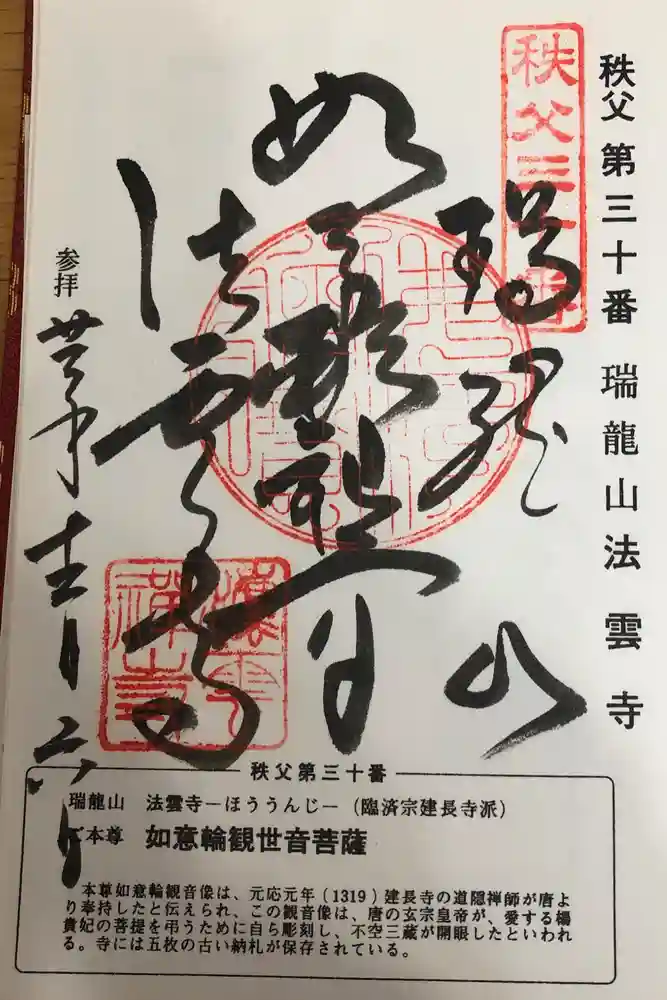 秩父 第三十番 瑞龍山法雲寺
秩父三十番
瑞龍山
如意輪観世音
法雲寺
参拝
秩父第三十番
瑞龍山 法雲寺－ほううんじ－（臨済宗建長寺派）
ご本尊 如意輪観世音菩薩
本尊如意輪観音像は、元応元年（1319）建長寺の道隠禅師が唐よ
り奉持したと伝えられ、この観音像は、唐の玄宗皇帝が、愛する楊
貴妃の菩提を弔うために自ら彫刻し、不空三蔵が開眼したといわれ
る。寺には五枚の古い納札が保存されている。